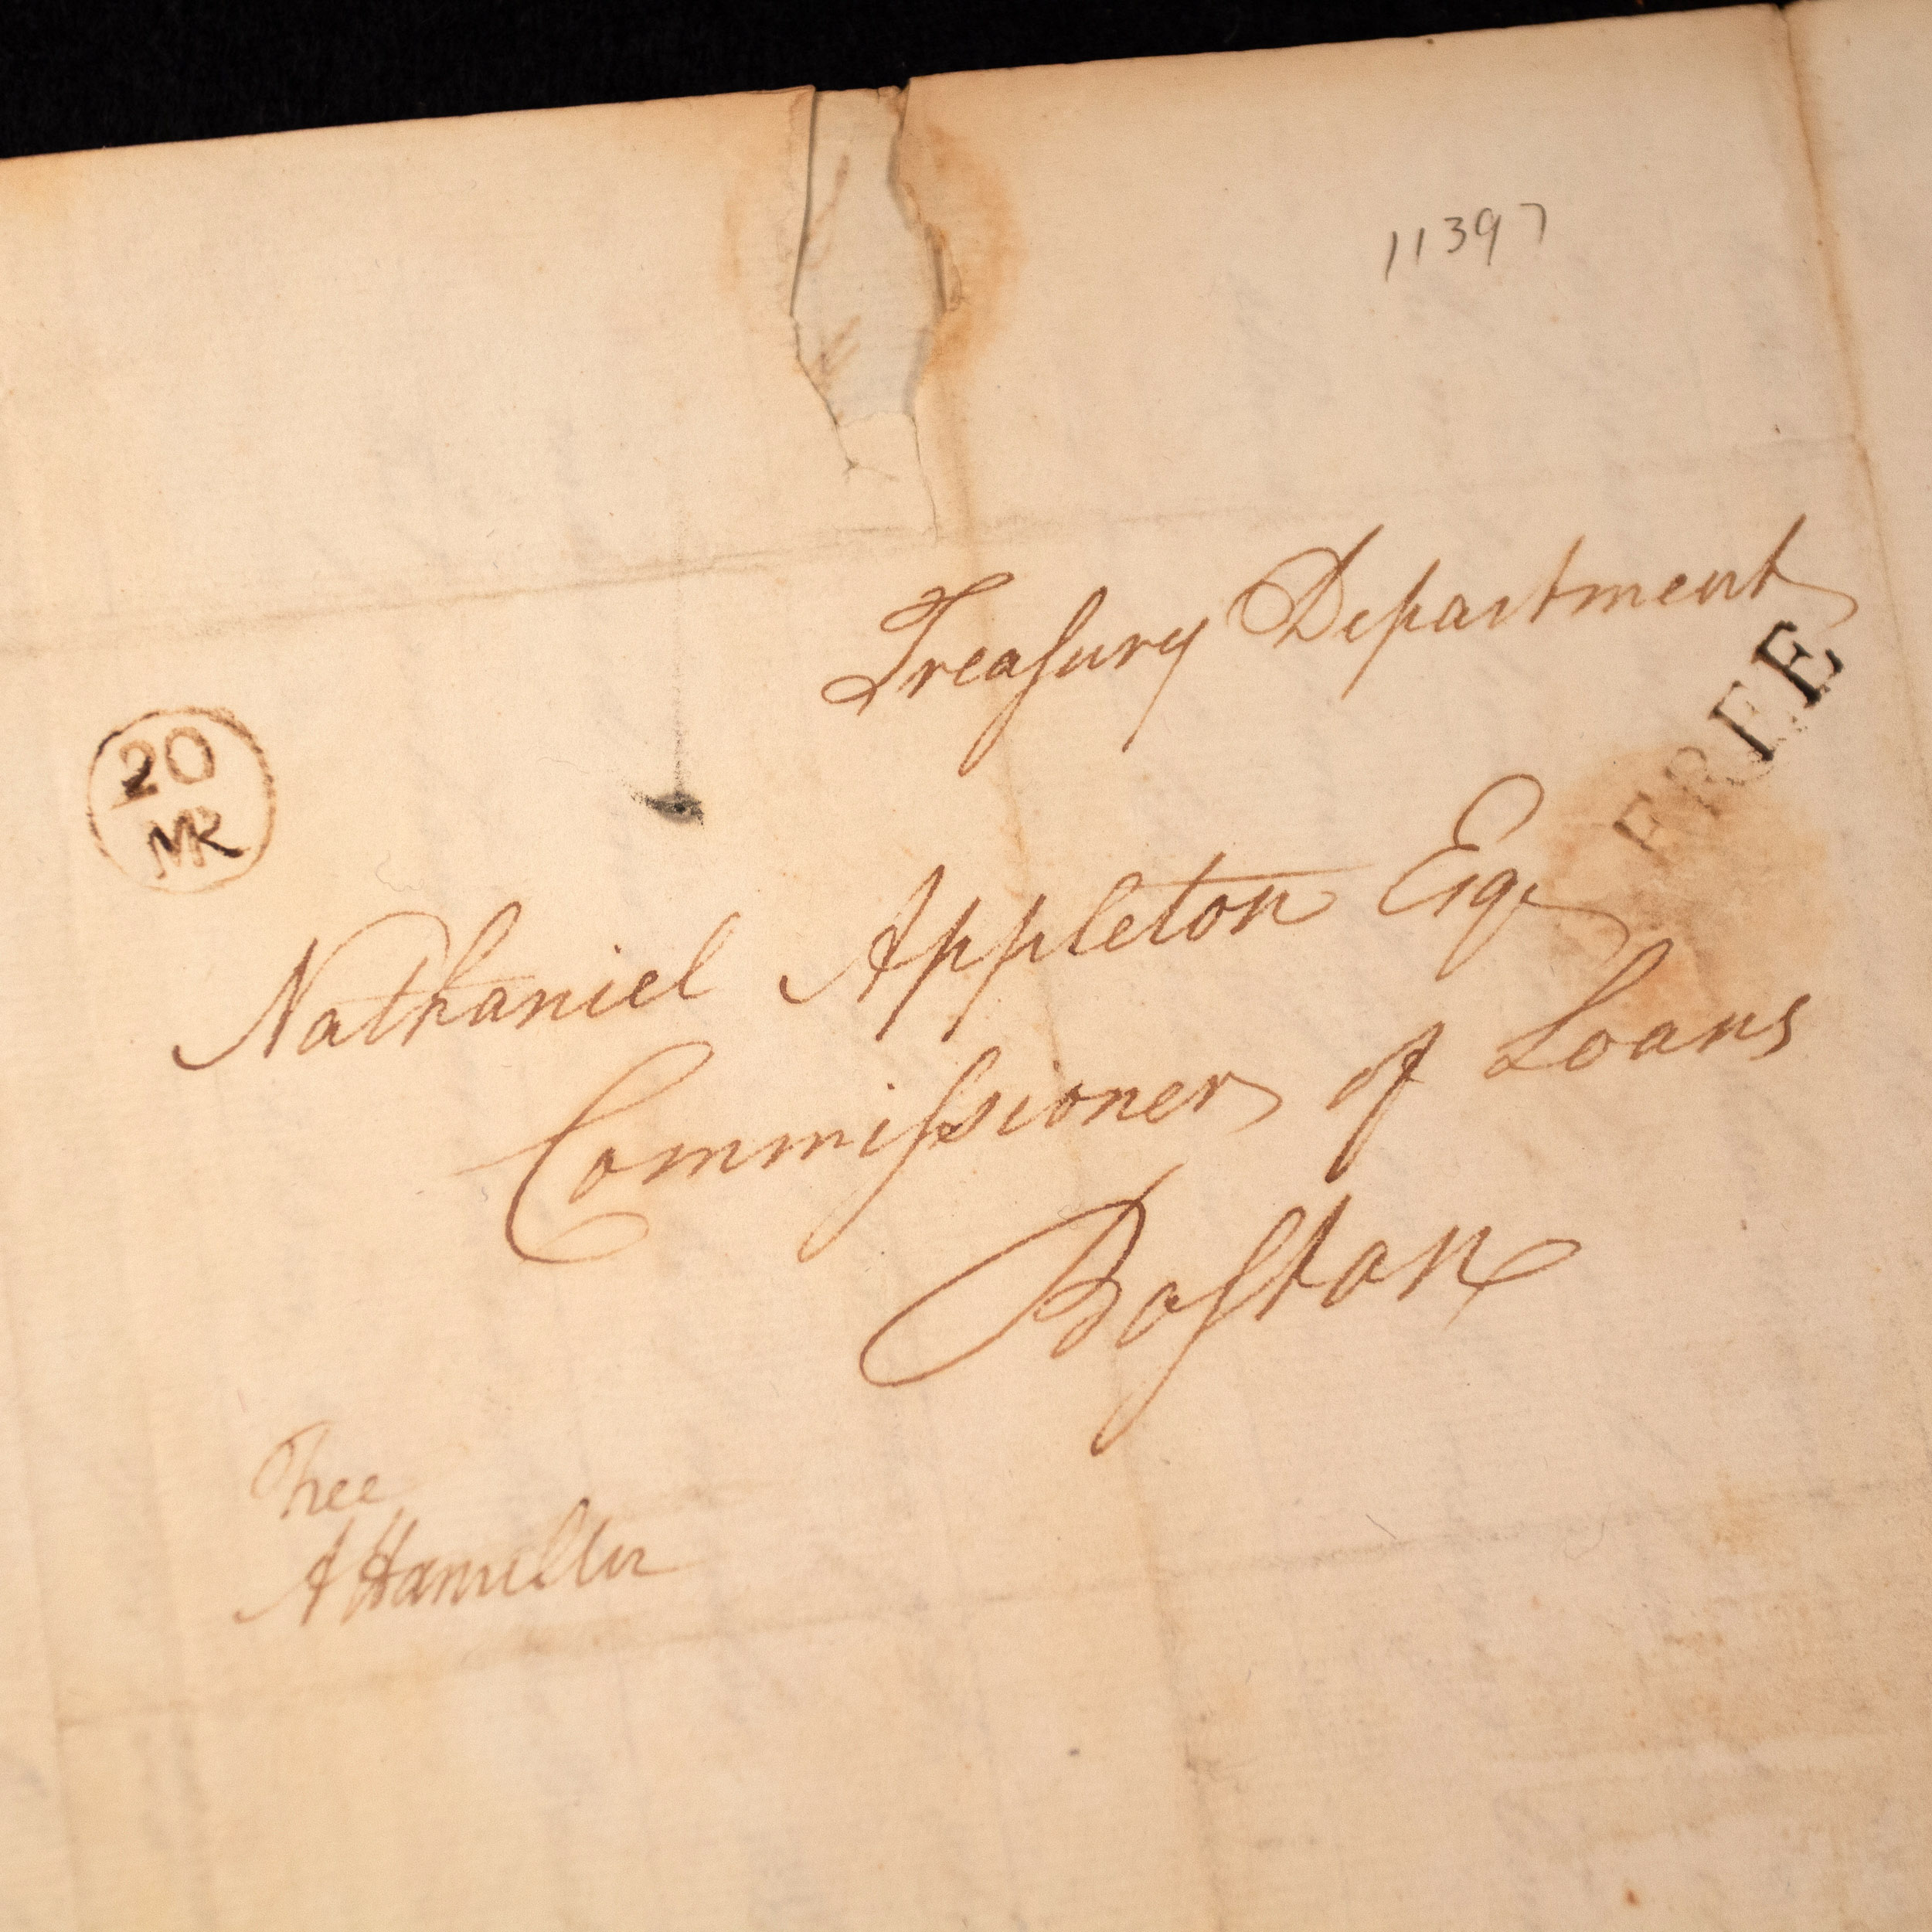 11397
Treaſury Department
FREE
20
MR
Nathaniel Appleton Esqr
Commiſsioner of Loans
Boſton
Free
A Hamilton